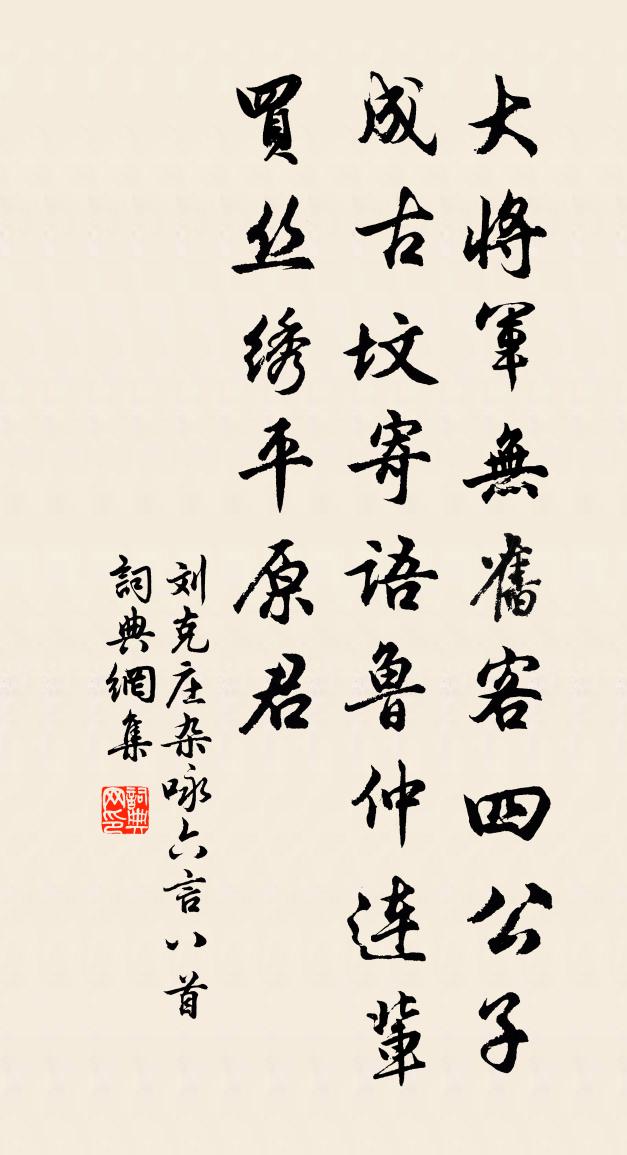 大将軍無舊客四公子
成古坟寄语鲁仲连輩
買丝绣平原君
刘克庄杂咏六言八首
詞典網集
詞典网印